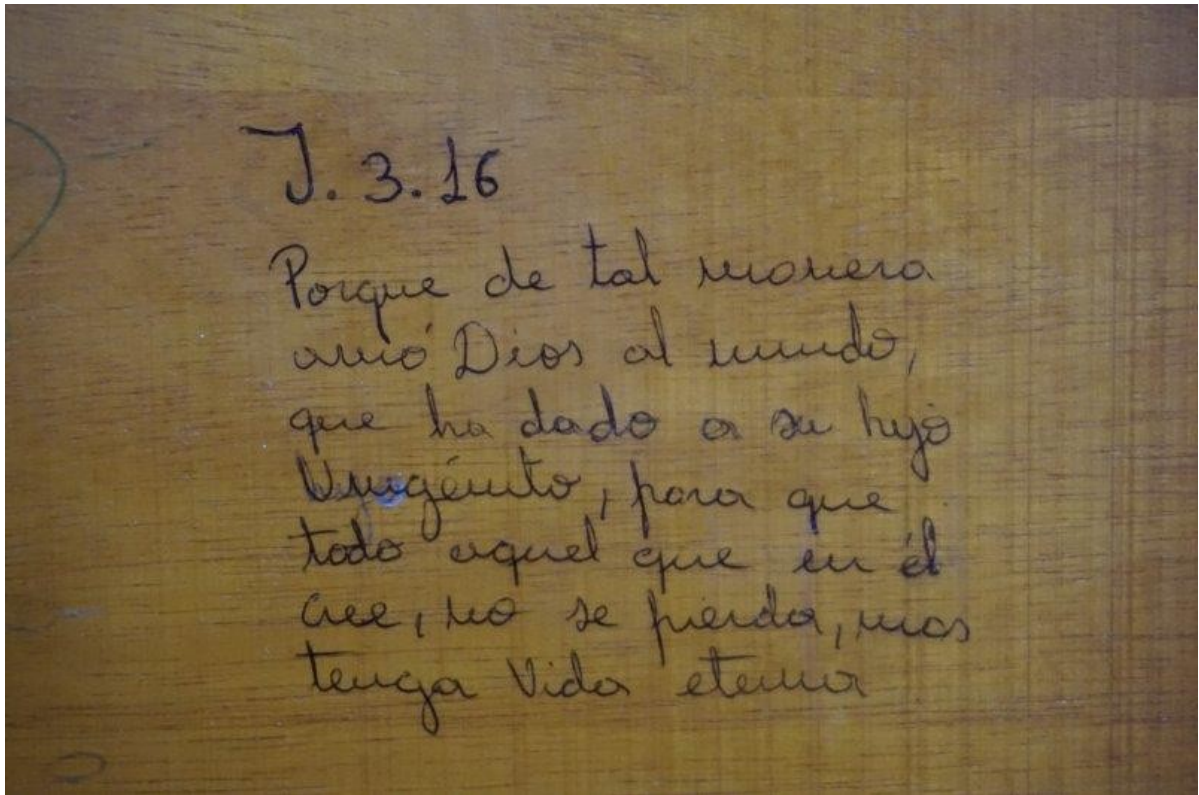 J. 3.16
Porque de tal manera
amó Dios al mundo,
que ha dado a su hijo
Unigénito, para que
todo aquel que en él
cree, no se pierda, mas
tenga Vida eterna